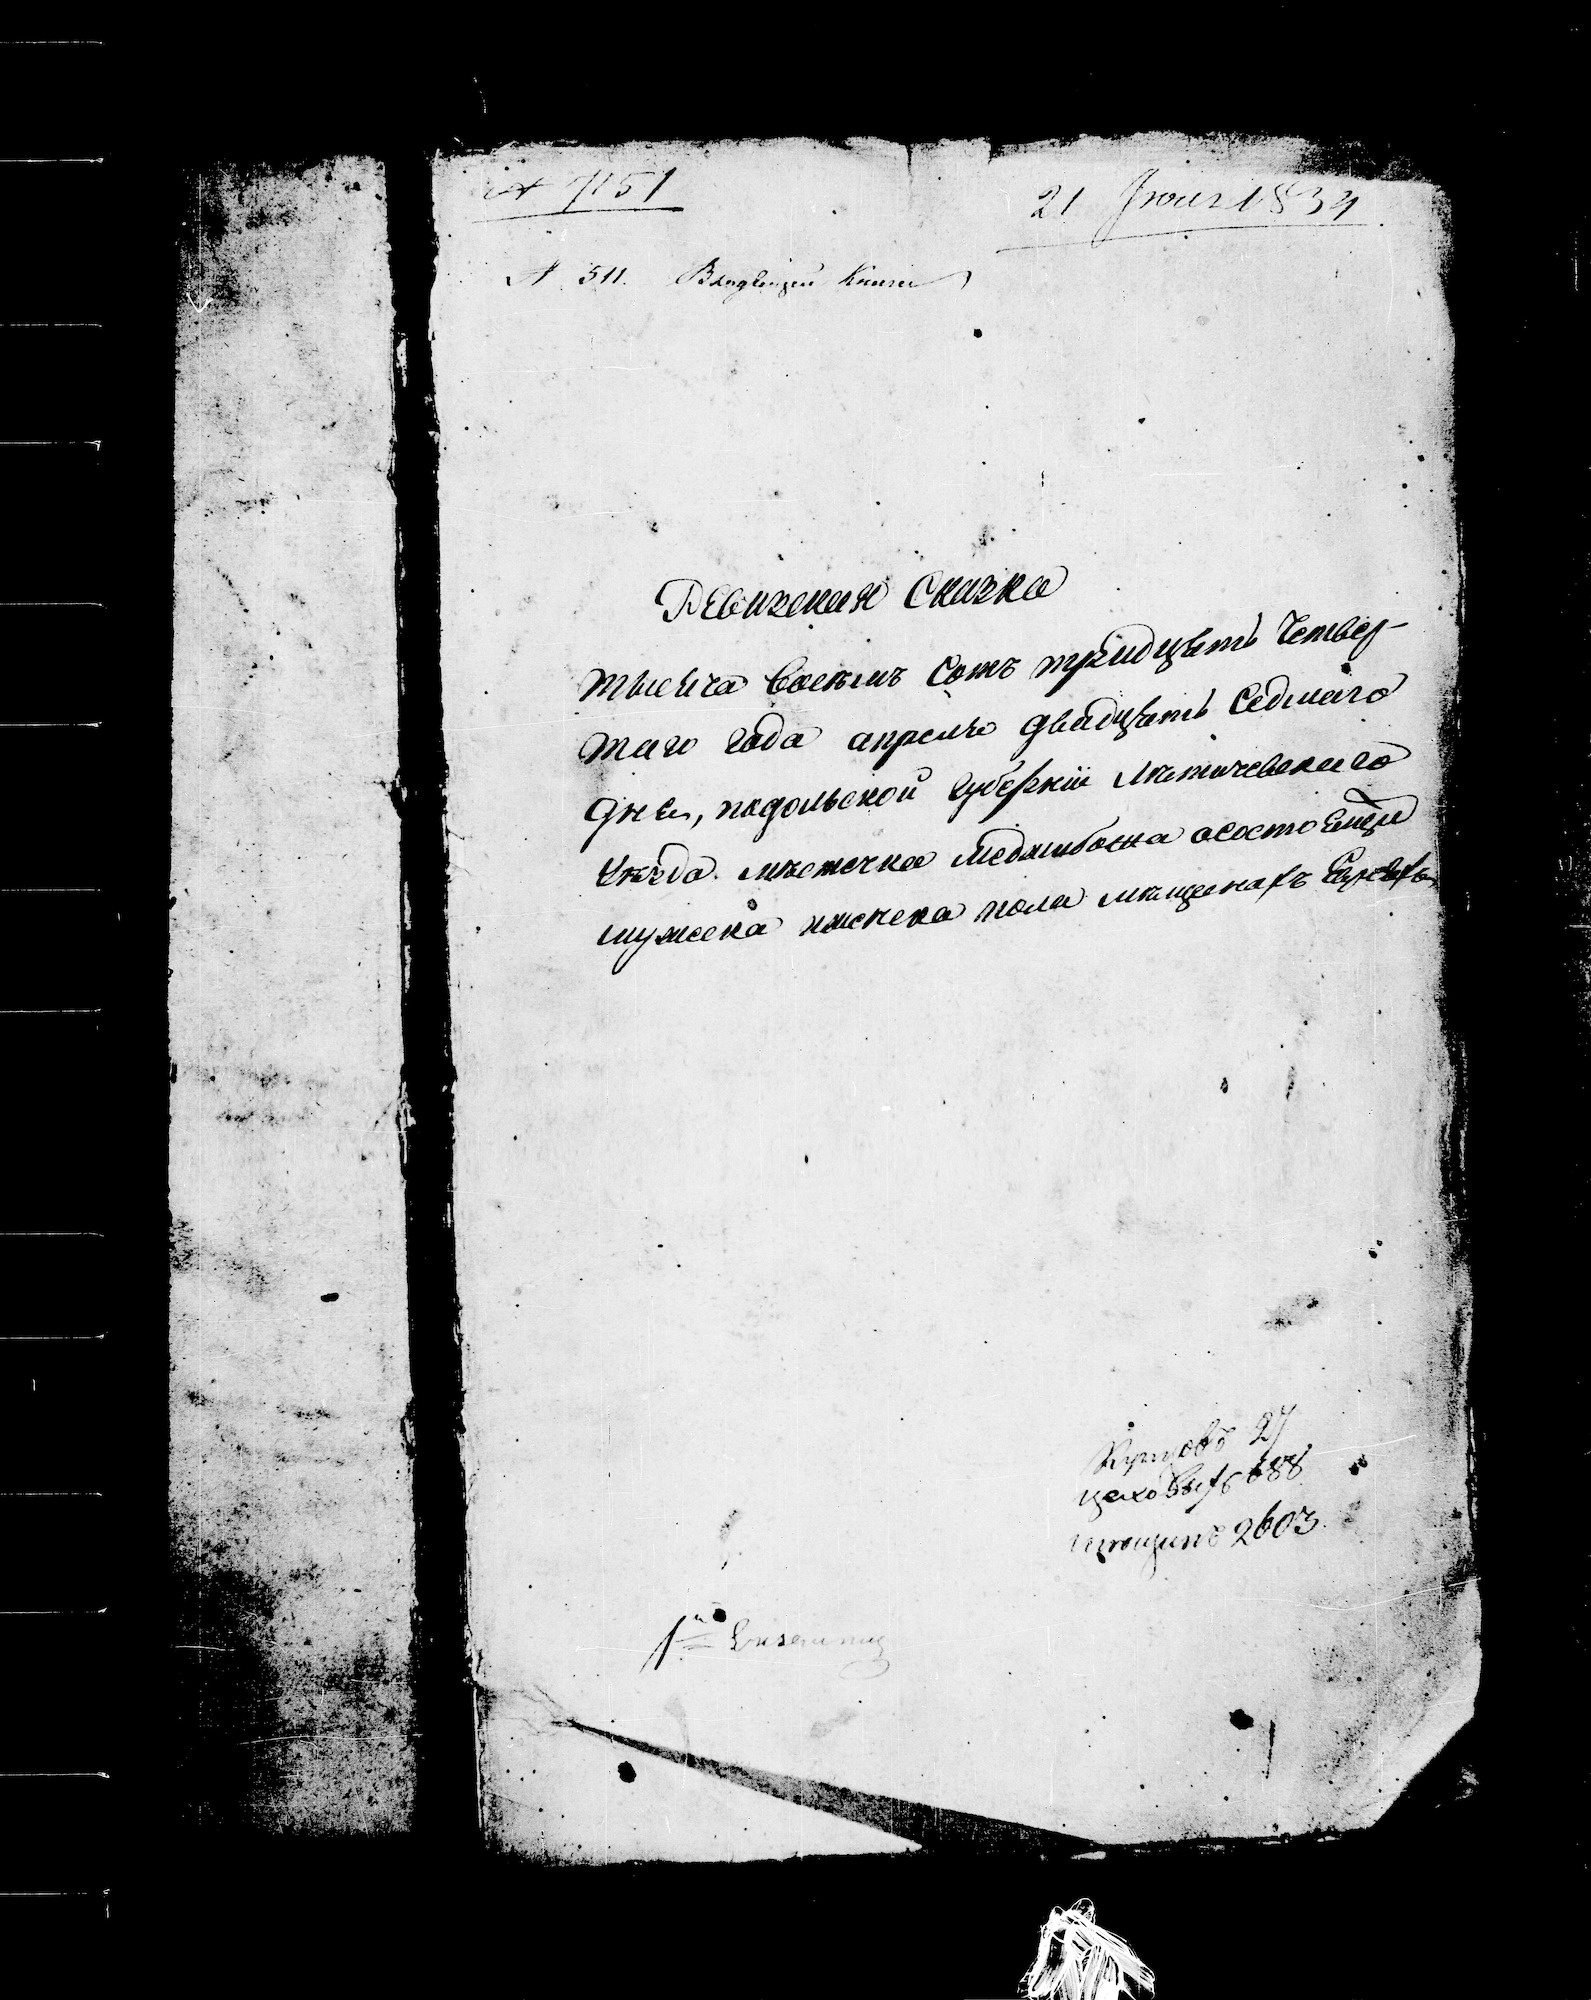 № 7151
21 Июня 1834
№ 511. Входящей Книги
Ревизская Сказка
тысяча восемь сотъ тридцать Четвер-
таго года апреля двадцать Седмаго
дня, подольской губерніи Лѣтичевскаго
уѣзда мѣстечка Меджибожа о состоящи
мужеска и женска пола мѣщанахъ Евреяхъ
Купцовъ 27
цеховыхъ 688
мещанъ 2603
1й Экземпляр